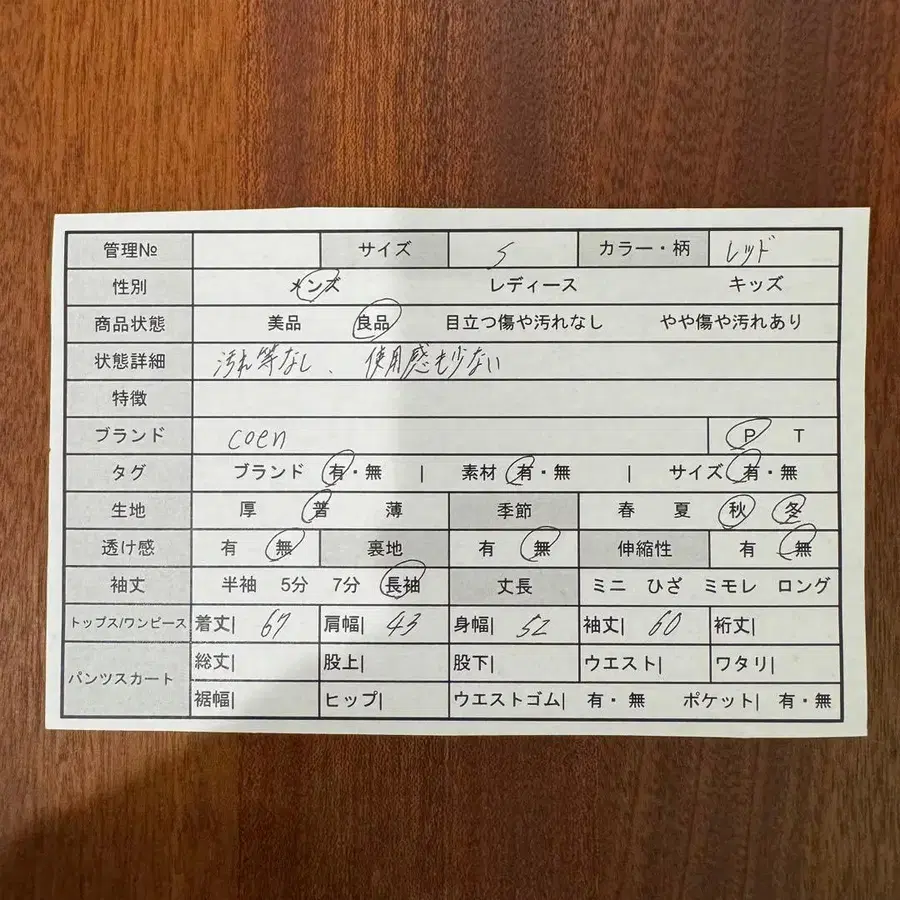 管理№ サイズ S カラー・柄 レッド
性別 メンズ レディース キッズ
商品状態 美品 良品 目立つ傷や汚れなし やや傷や汚れあり
状態詳細 汚れ等なし、使用感も少ない
特徴
ブランド coen P T
タグ ブランド 有・無 | 素材 有・無 | サイズ 有・無
生地 厚 普 薄 季節 春 夏 秋 冬
透け感 有 無 裏地 有 無 伸縮性 有 無
袖丈 半袖 5分 7分 長袖 丈長 ミニ ひざ ミモレ ロング
トップス/ワンピース 着丈| 67 肩幅| 43 身幅| 52 袖丈| 60 裄丈|
パンツスカート 総丈| 股上| 股下| ウエスト| ワタリ|
裾幅| ヒップ| ウエストゴム| 有・無 ポケット| 有・無